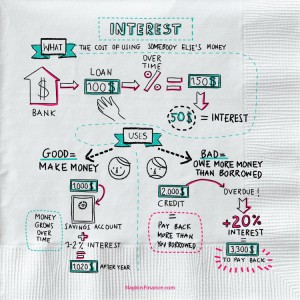 INTEREST
WHAT THE COST OF USING SOMEBODY ELSE'S MONEY
BANK
LOAN
100$
OVER
TIME
%
=
150$
50$ = INTEREST
USES
GOOD=
MAKE MONEY
BAD=
OWE MORE MONEY
THAN BORROWED
1,000$
SAVINGS ACCOUNT
MONEY
GROWS
OVER
TIME
+
INTEREST
=
1,020$ AFTER YEAR
2,000$
CREDIT
=
PAY BACK
MORE THAN
YOU BORROWED
OVERDUE!
+20%
INTEREST
=
TO PAY BACK
NapkinFinance.com